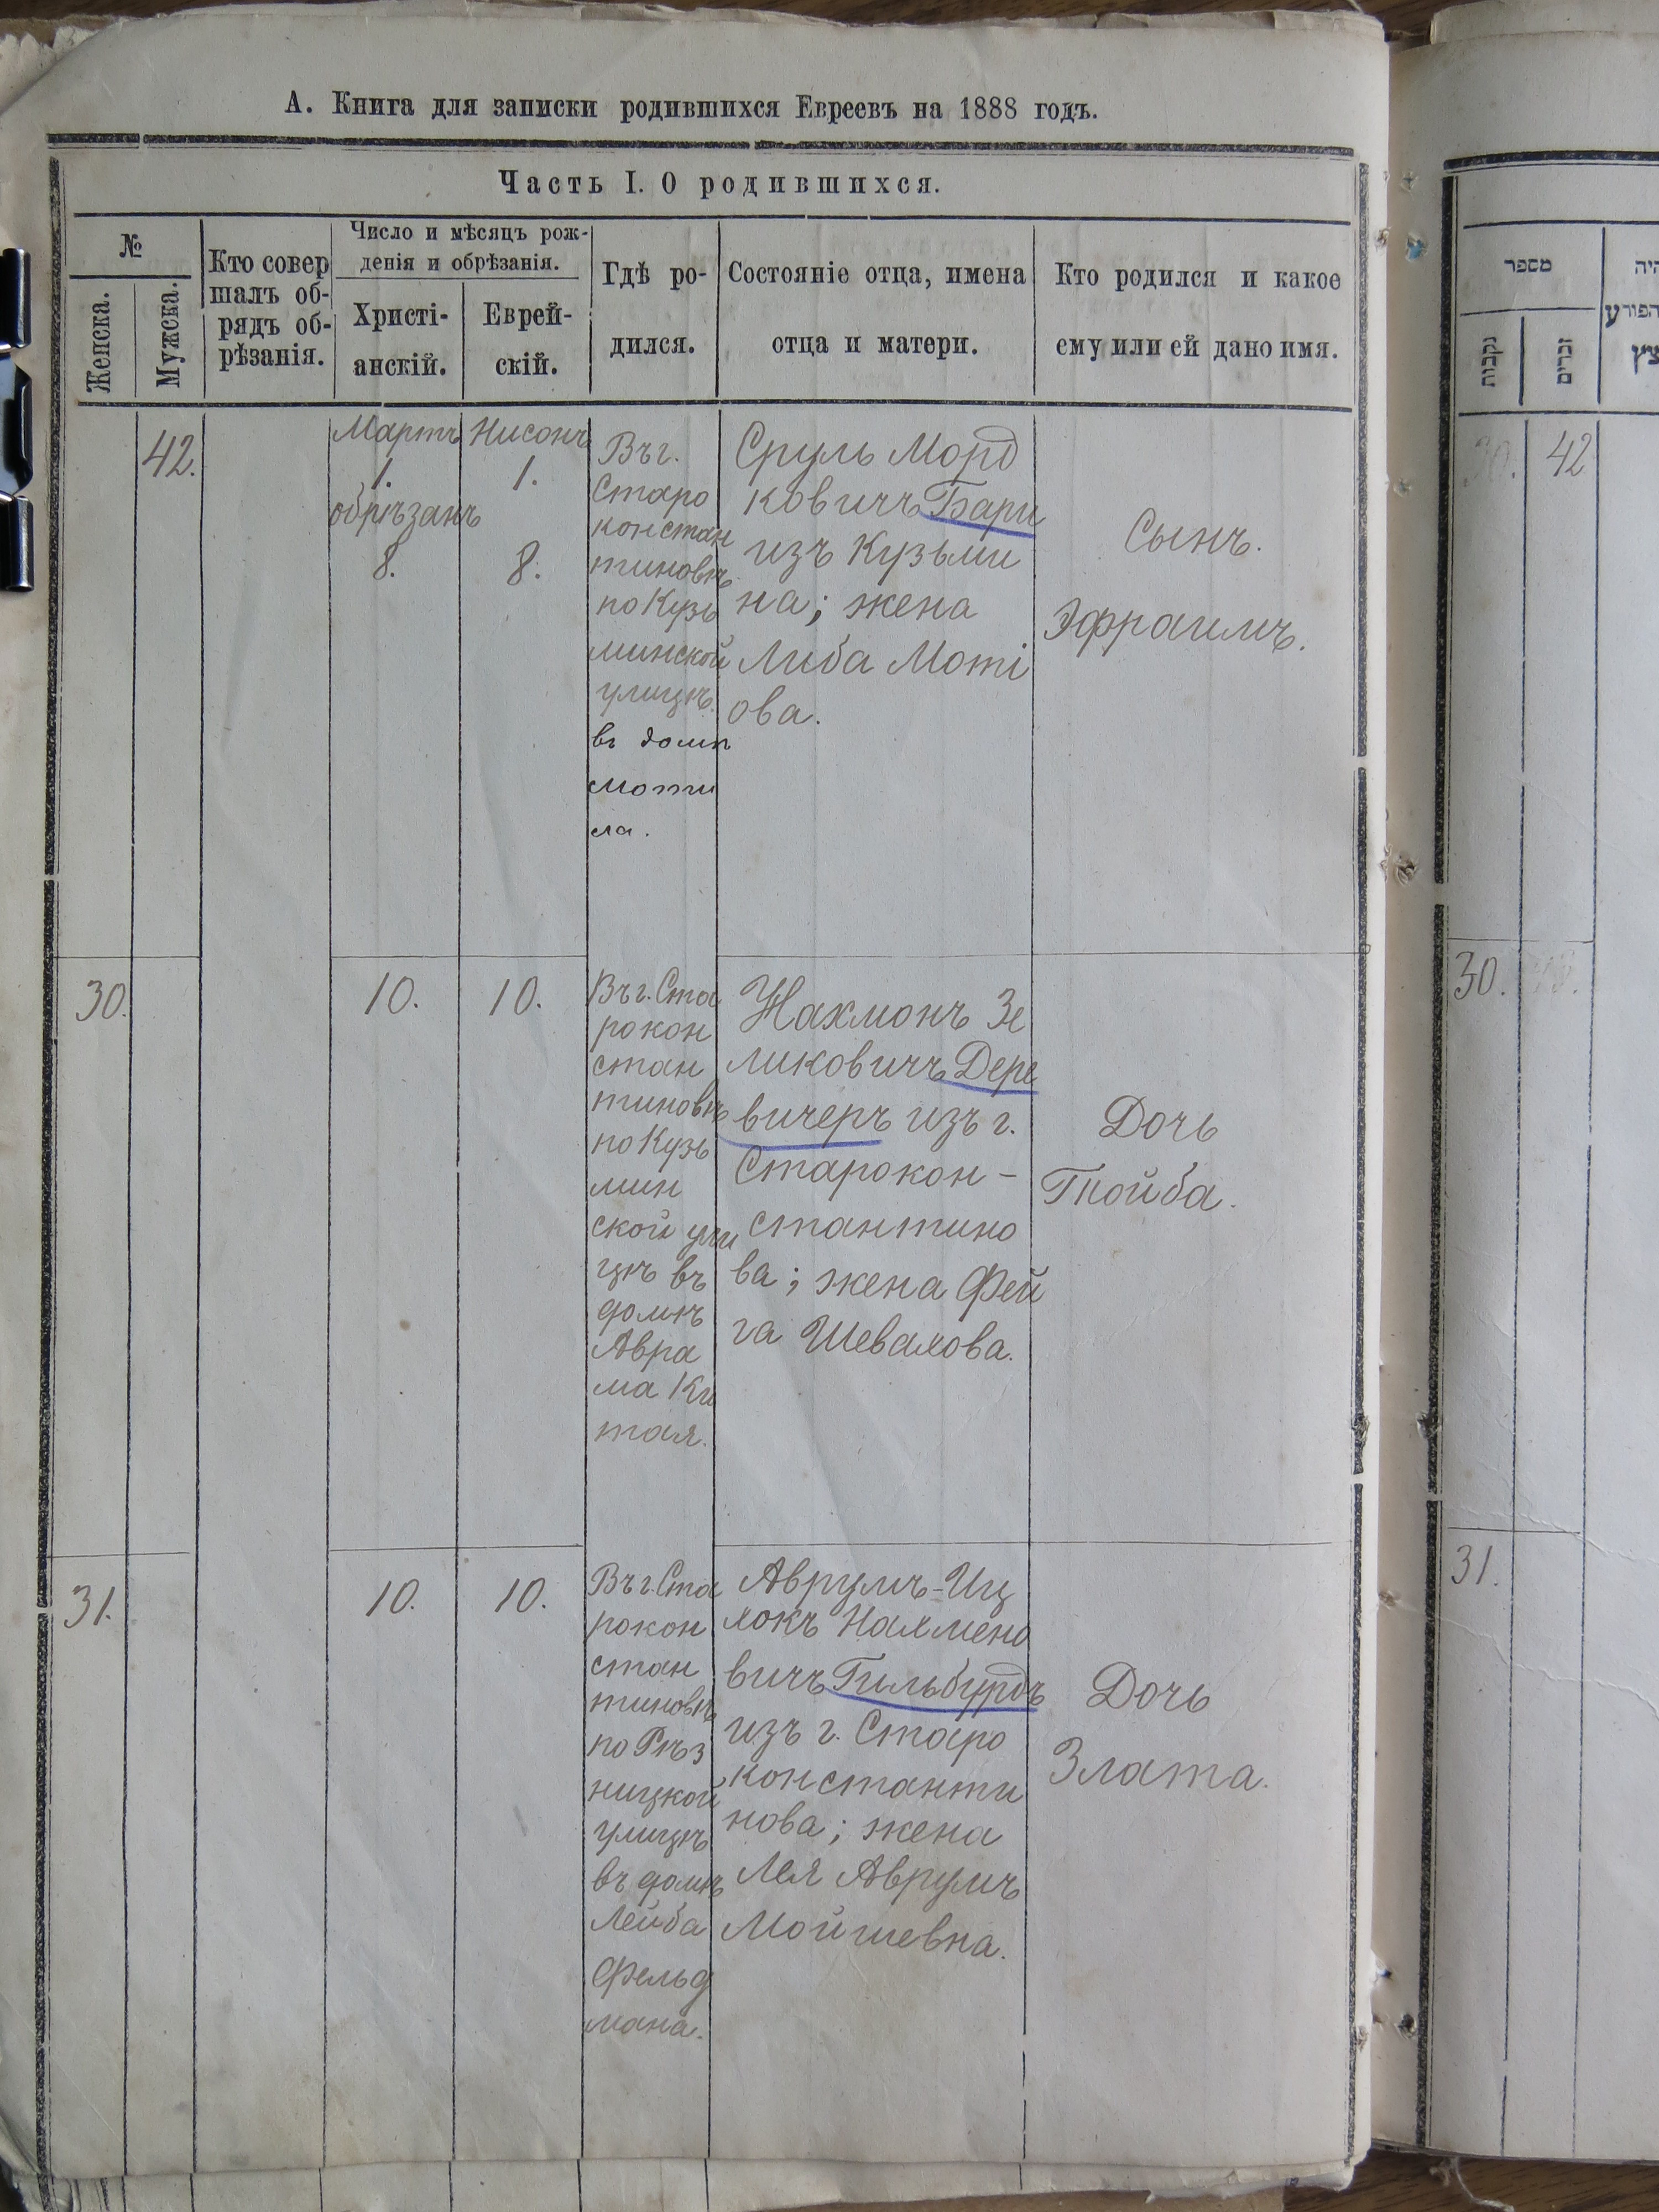 А. Книга для записки родившихся Евреевъ на 1888 годъ.
Часть I. О родившихся.
№
Женска.
Мужска.
Кто совер
шалъ об-
рядъ об-
рѣзанія.
Число и мѣсяцъ рож-
денія и обрѣзанія.
Христі-
анскій.
Еврей-
скій.
Гдѣ ро-
дился.
Состояніе отца, имена
отца и матери.
Кто родился и какое
ему или ей дано имя.
42.
Мартъ
1.
обрѣзанъ
8.
Нисонъ
1.
8.
Въ г.
Старо
констан
тиновѣ
по Кузь
минской
улицѣ.
въ домѣ
Моти
ла.
Сруль Морд
ковичъ Бари
изъ Кузьми
на; жена
Либа Моті
ова.
Сынъ.
Эфраимъ.
30.
10.
10.
Въ г. Ста
рокон
стан
тиновѣ
по Кузь
мин
ской ули
цѣ въ
домѣ
Авра
ма Ки
тая.
Нахмонъ Зе
ликовичъ Дере
вичеръ изъ г.
Старокон-
стантино
ва; жена Фей
га Шевахова.
Дочь
Тойба.
31.
10.
10.
Въ г. Ста
рокон
стан
тиновѣ
по Рѣз
ницкой
улицѣ
въ домѣ
Лейба
Фельд
мана.
Аврумъ-Иц
хокъ Нахмено
вичъ Гильбурдъ
изъ г. Старо
константи
нова; жена
Лея Аврумъ
Мойшевна.
Дочь
Злата.
מספר
נקבות
זכרים
היה
הפורע
42
30.
31.